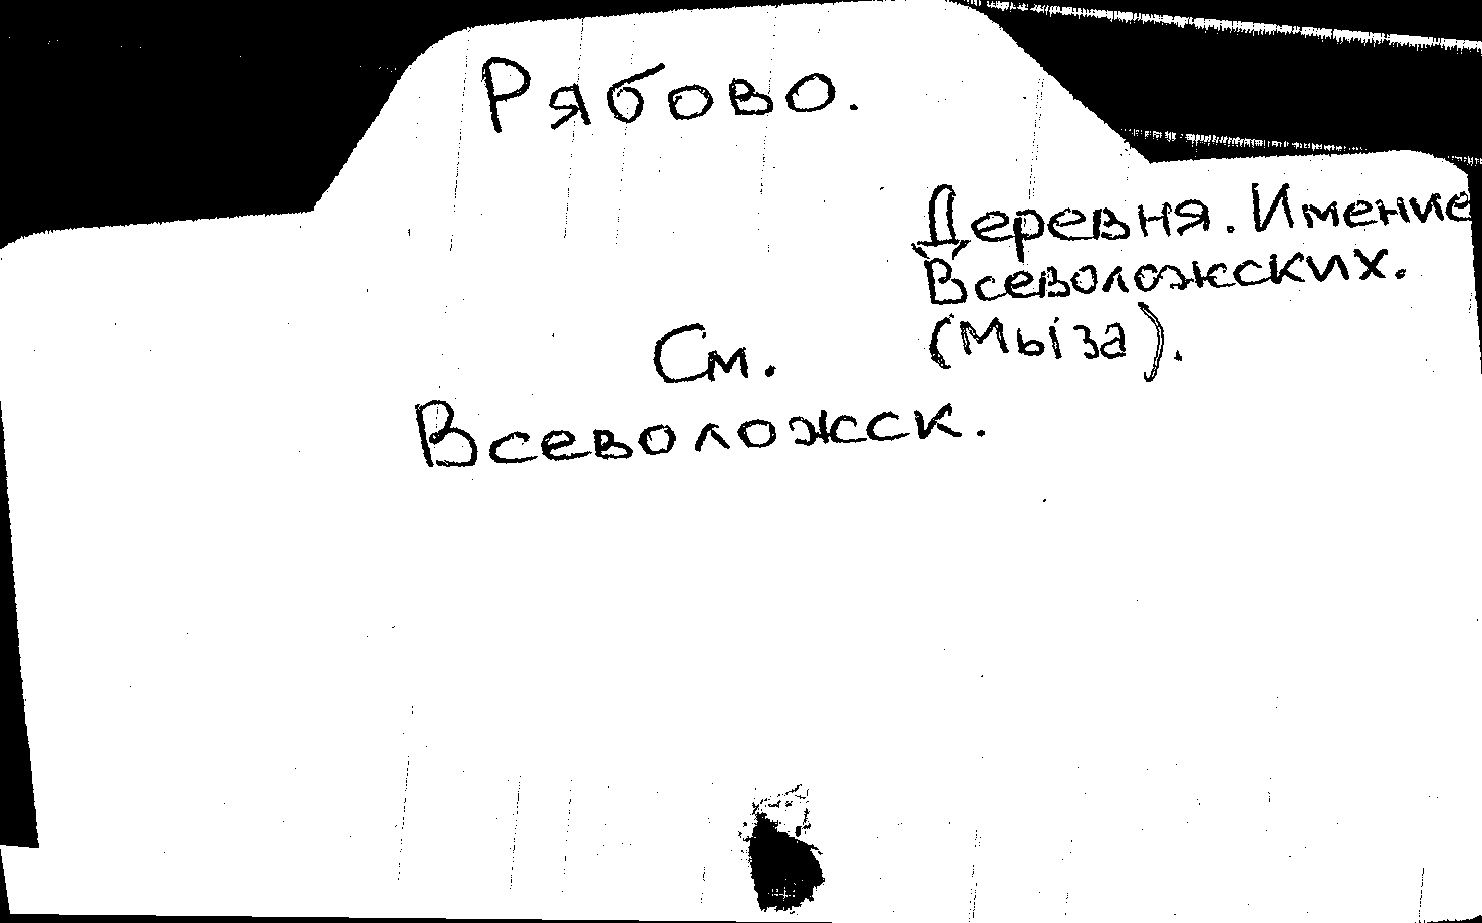 Рябово.
Деревня. Имение
Всеволожских.
(Мыза).
См.
Всеволожск.